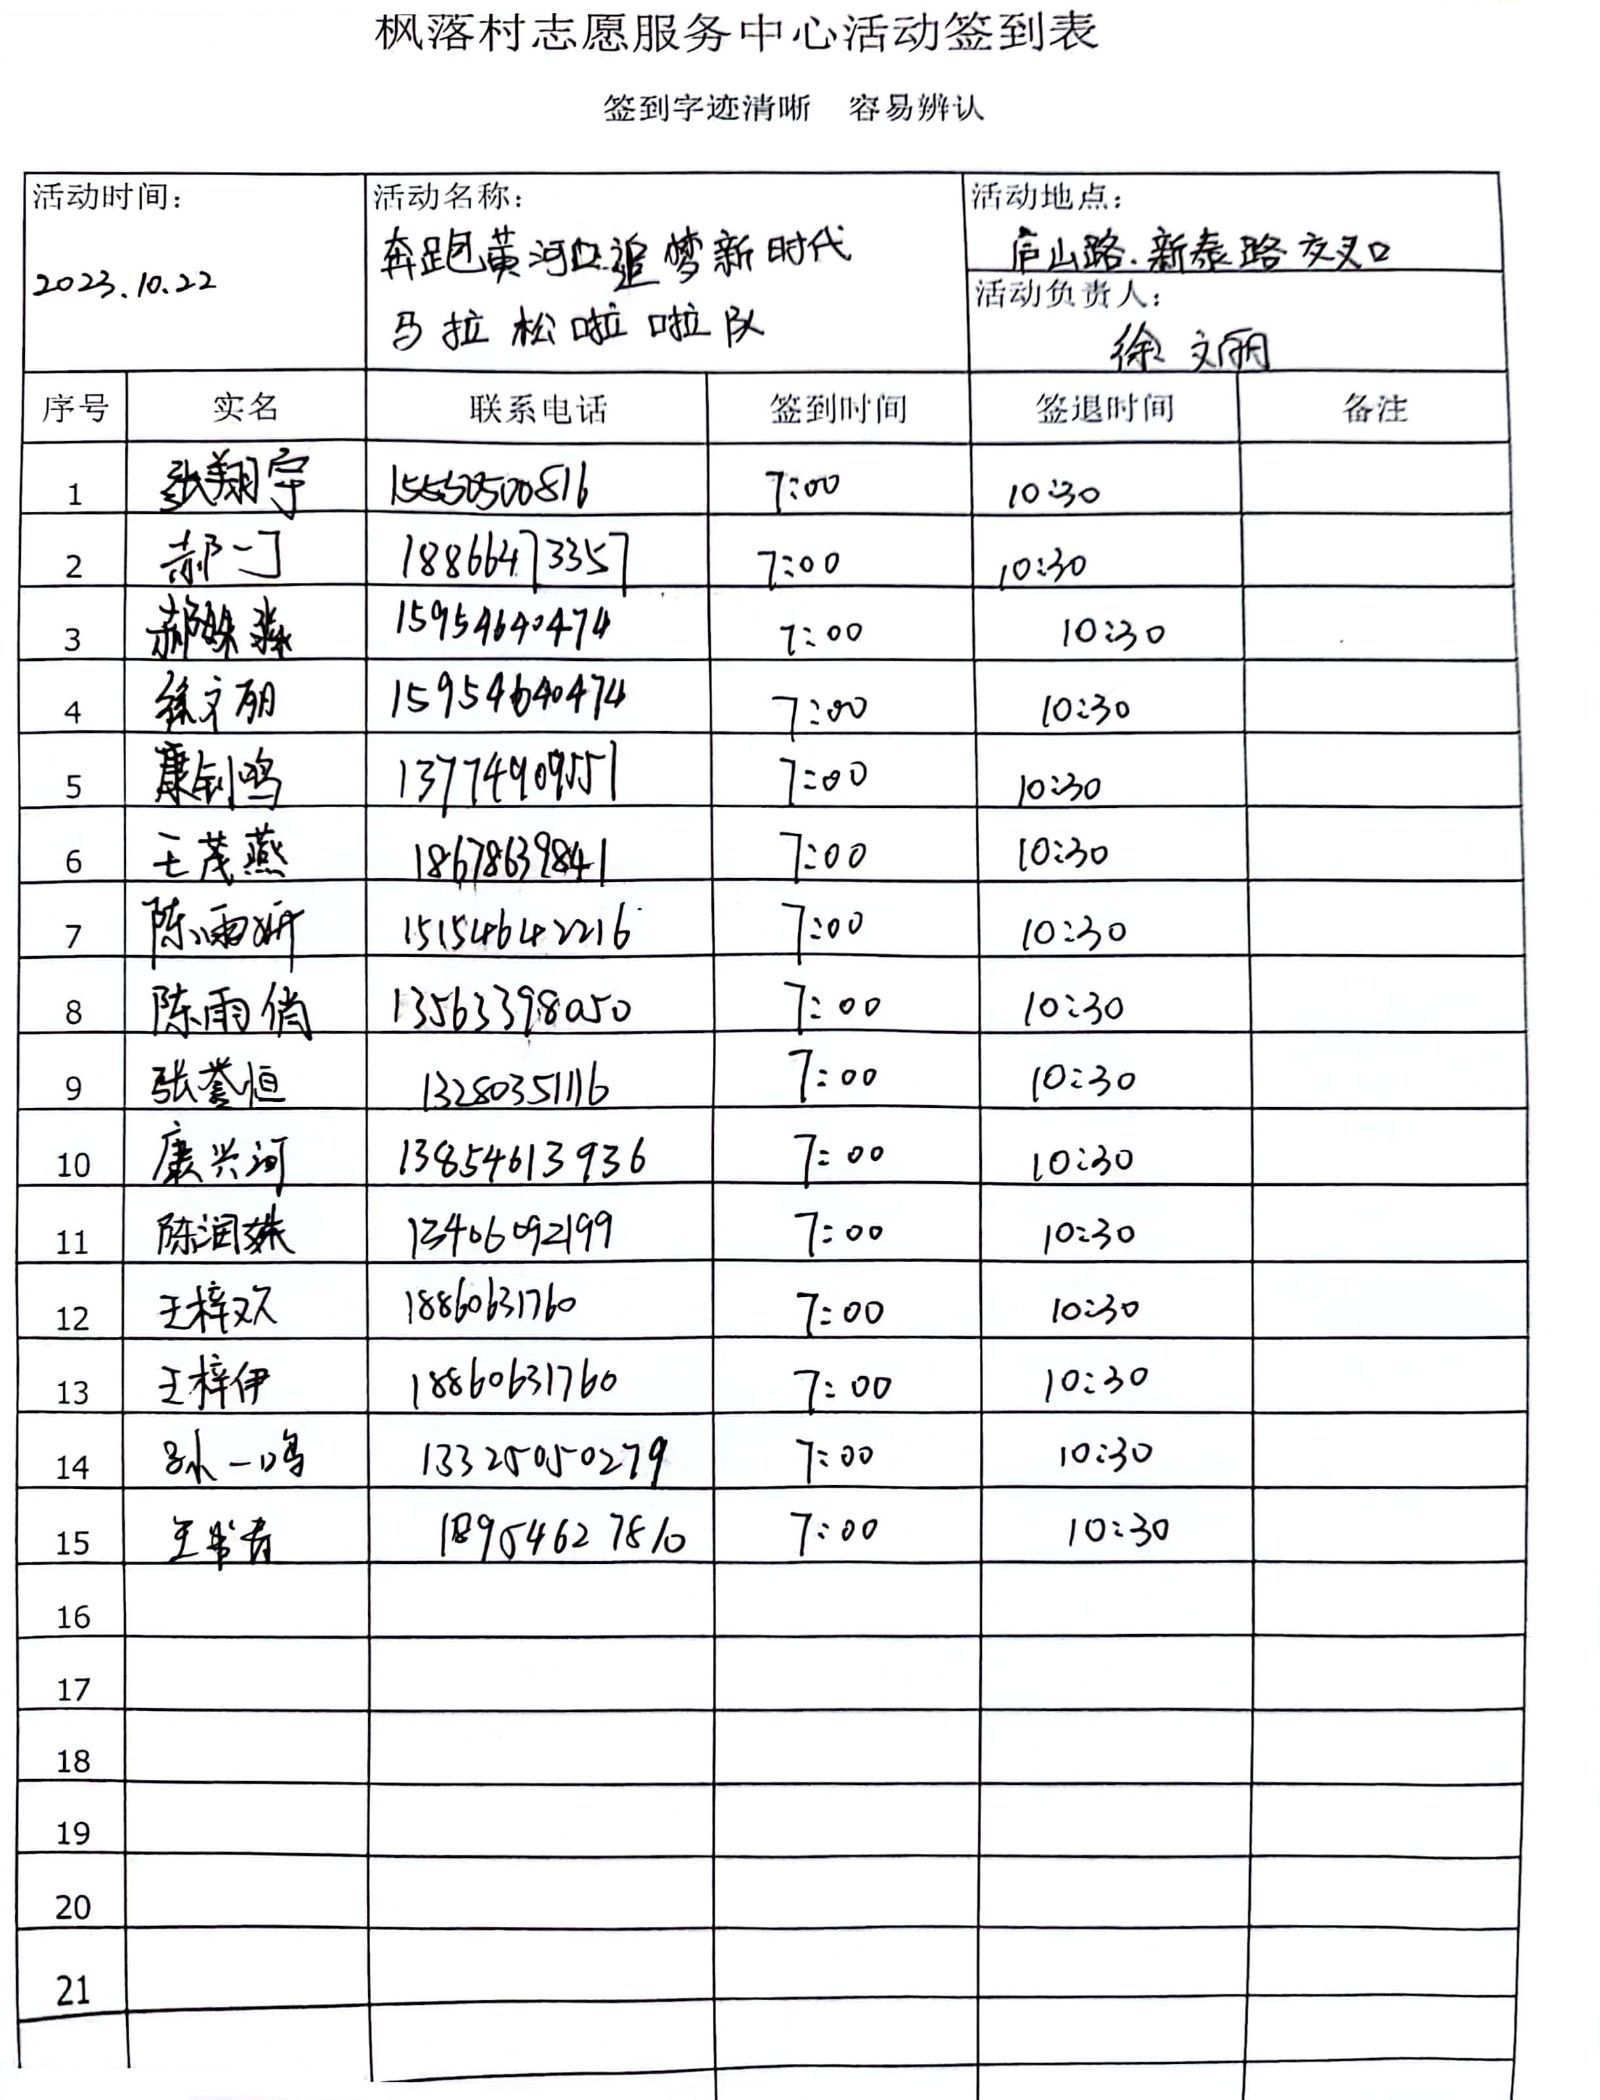 枫落村志愿服务中心活动签到表
签到字迹清晰 容易辨认
活动时间：
2023.10.22
活动名称：
奔跑黄河口追梦新时代
马拉松啦啦队
活动地点：
庐山路.新泰路交叉口
活动负责人：
徐文丽
序号 实名 联系电话 签到时间 签退时间 备注
1 张翔宇 15550500816 7:00 10:30
2 郝一丁 18866473357 7:00 10:30
3 郝姝淼 15954640474 7:00 10:30
4 徐文丽 15954640474 7:00 10:30
5 康钊鸣 13774909551 7:00 10:30
6 王茂燕 18678639841 7:00 10:30
7 陈雨妍 15154642216 7:00 10:30
8 陈雨俏 13563398050 7:00 10:30
9 张誉恒 13280351116 7:00 10:30
10 康兴河 13854613936 7:00 10:30
11 陈润姝 13406092199 7:00 10:30
12 王梓欢 18860631760 7:00 10:30
13 王梓伊 18860631760 7:00 10:30
14 孙一鸣 13325050279 7:00 10:30
15 18954627810 7:00 10:30
16
17
18
19
20
21